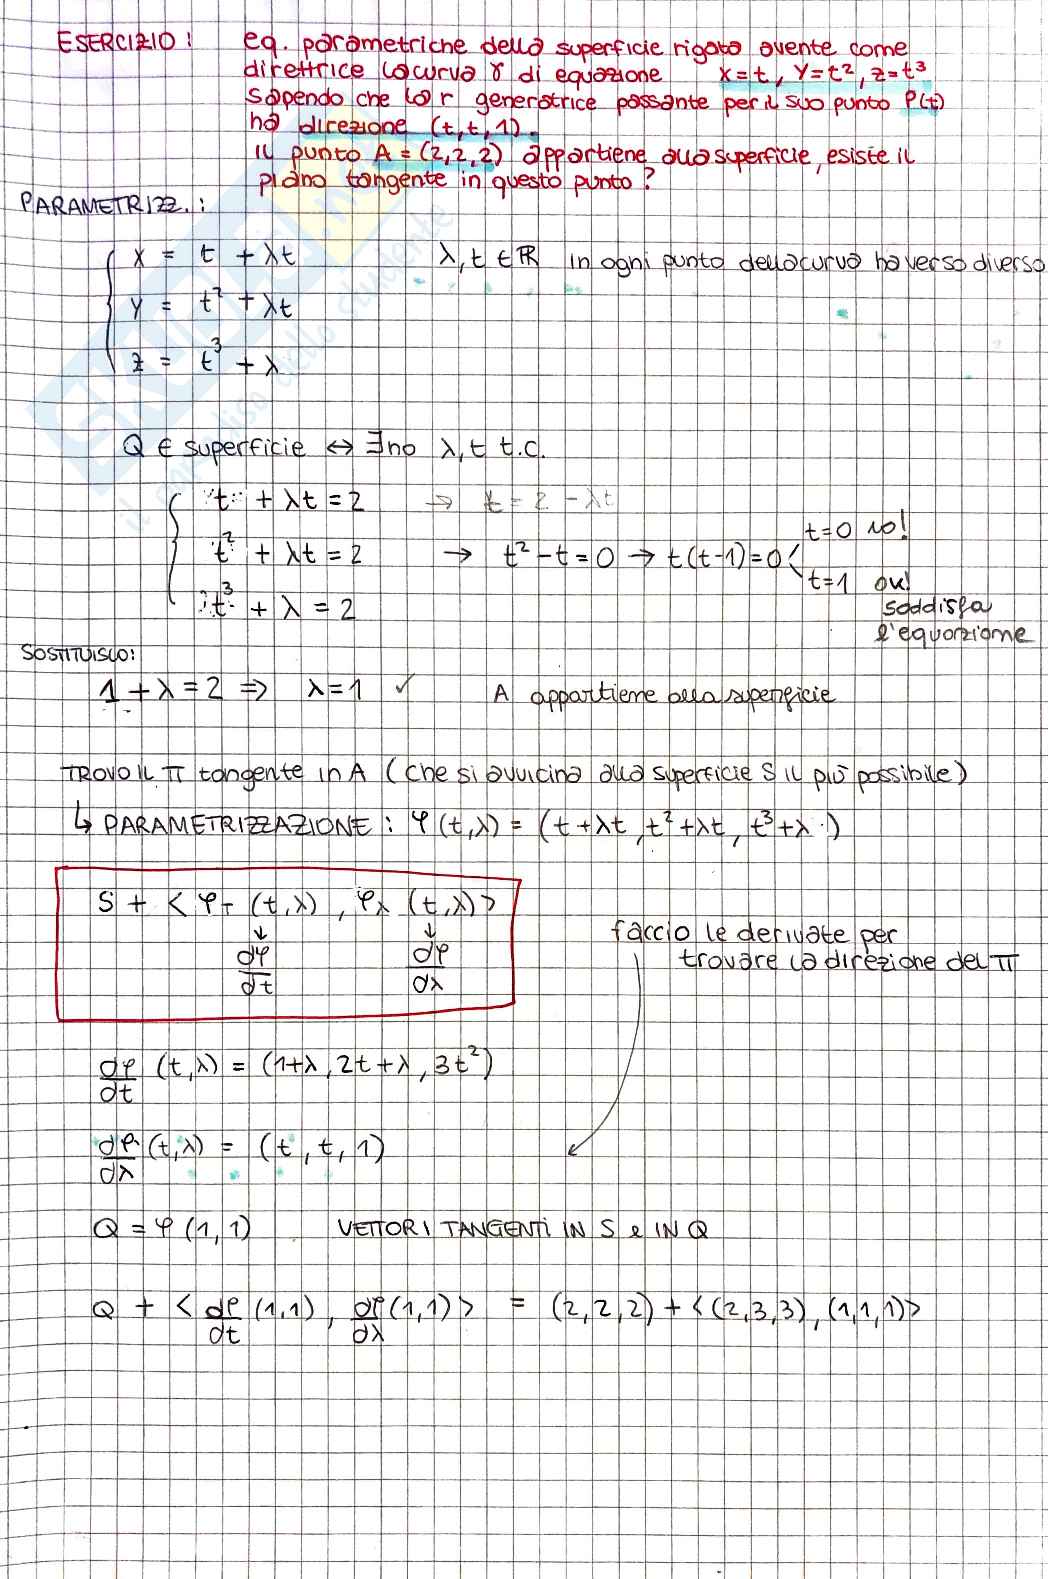 ESERCIZIO: eq. parametriche della superficie rigata avente come
direttrice la curva γ di equazione x=t, y=t², z=t³
sapendo che la r generatrice passante per il suo punto P(t)
ha direzione (t,t,1).
Il punto A=(2,2,2) appartiene alla superficie, esiste il
piano tangente in questo punto?
PARAMETRIZZ.:
x = t + λt λ,t ∈ ℝ in ogni punto della curva ha verso diverso
y = t² + λt
z = t³ + λ
Q ∈ superficie ↔ ∃no λ,t t.c.
t + λt = 2 → t = 2 - λt
t² + λt = 2 → t² - t = 0 → t(t-1)=0 < t=0 no!
t=1 ok!
t³ + λ = 2
soddisfa
l'equazione
SOSTITUISCO:
1 + λ = 2 ⇒ λ = 1 ✓ A appartiene alla superficie
TROVO IL π tangente in A (che si avvicina alla superficie S il più possibile)
↳ PARAMETRIZZAZIONE: φ(t,λ) = (t+λt, t²+λt, t³+λ)
S + < φT (t,λ), φλ (t,λ)>
↓ ↓
dφ/dt dφ/dλ
faccio le derivate per
trovare la direzione del π
dφ/dt (t,λ) = (1+λ, 2t+λ, 3t²)
dφ/dλ (t,λ) = (t, t, 1)
Q = φ(1,1) VETTORI TANGENTI IN S e IN Q
Q + < dφ/dt (1,1), dφ/dλ (1,1) > = (2,2,2) + <(2,3,3), (1,1,1)>
SKUOLA.net
il paradiso dello studente